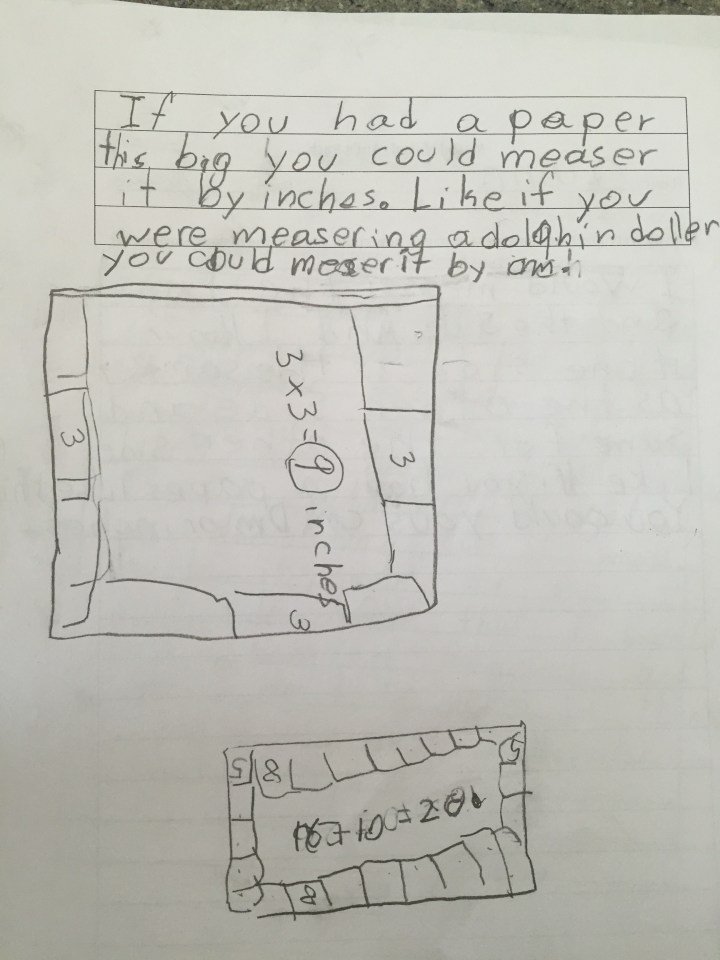 If you had a paper
this big you could measer
it by inches. Like if you
were measering a dolphin doller
you could meserit by
3
3 x 3 = 9 inches
3
3
5 8 5
8